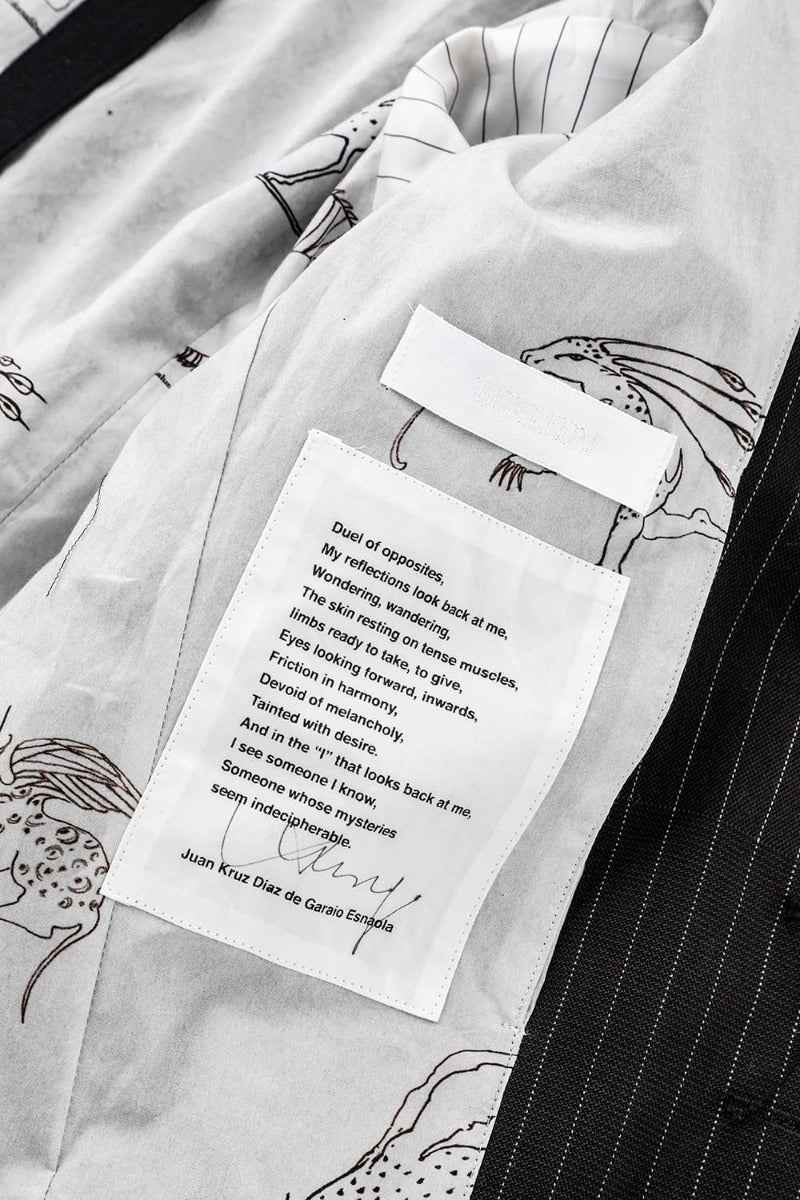 Duel of opposites,
My reflections look back at me,
Wondering, wandering,
The skin resting on tense muscles,
limbs ready to take, to give,
Eyes looking forward, inwards,
Friction in harmony,
Devoid of melancholy,
Tainted with desire.
And in the “I” that looks back at me,
I see someone I know,
Someone whose mysteries
seem indecipherable.
Juan Kruz Diaz de Garaio Esnaola